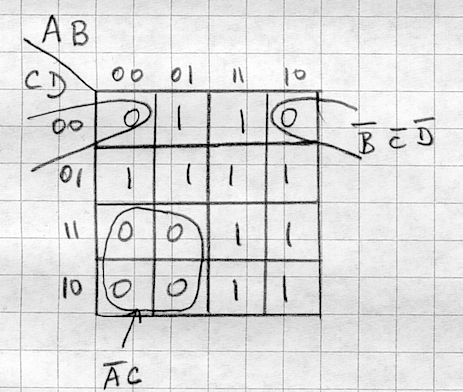 A B
CD 00 01 11 10
00 0 1 1 0 B̅ C̅ D̅
01 1 1 1 1
11 0 0 1 1
10 0 0 1 1
A̅C